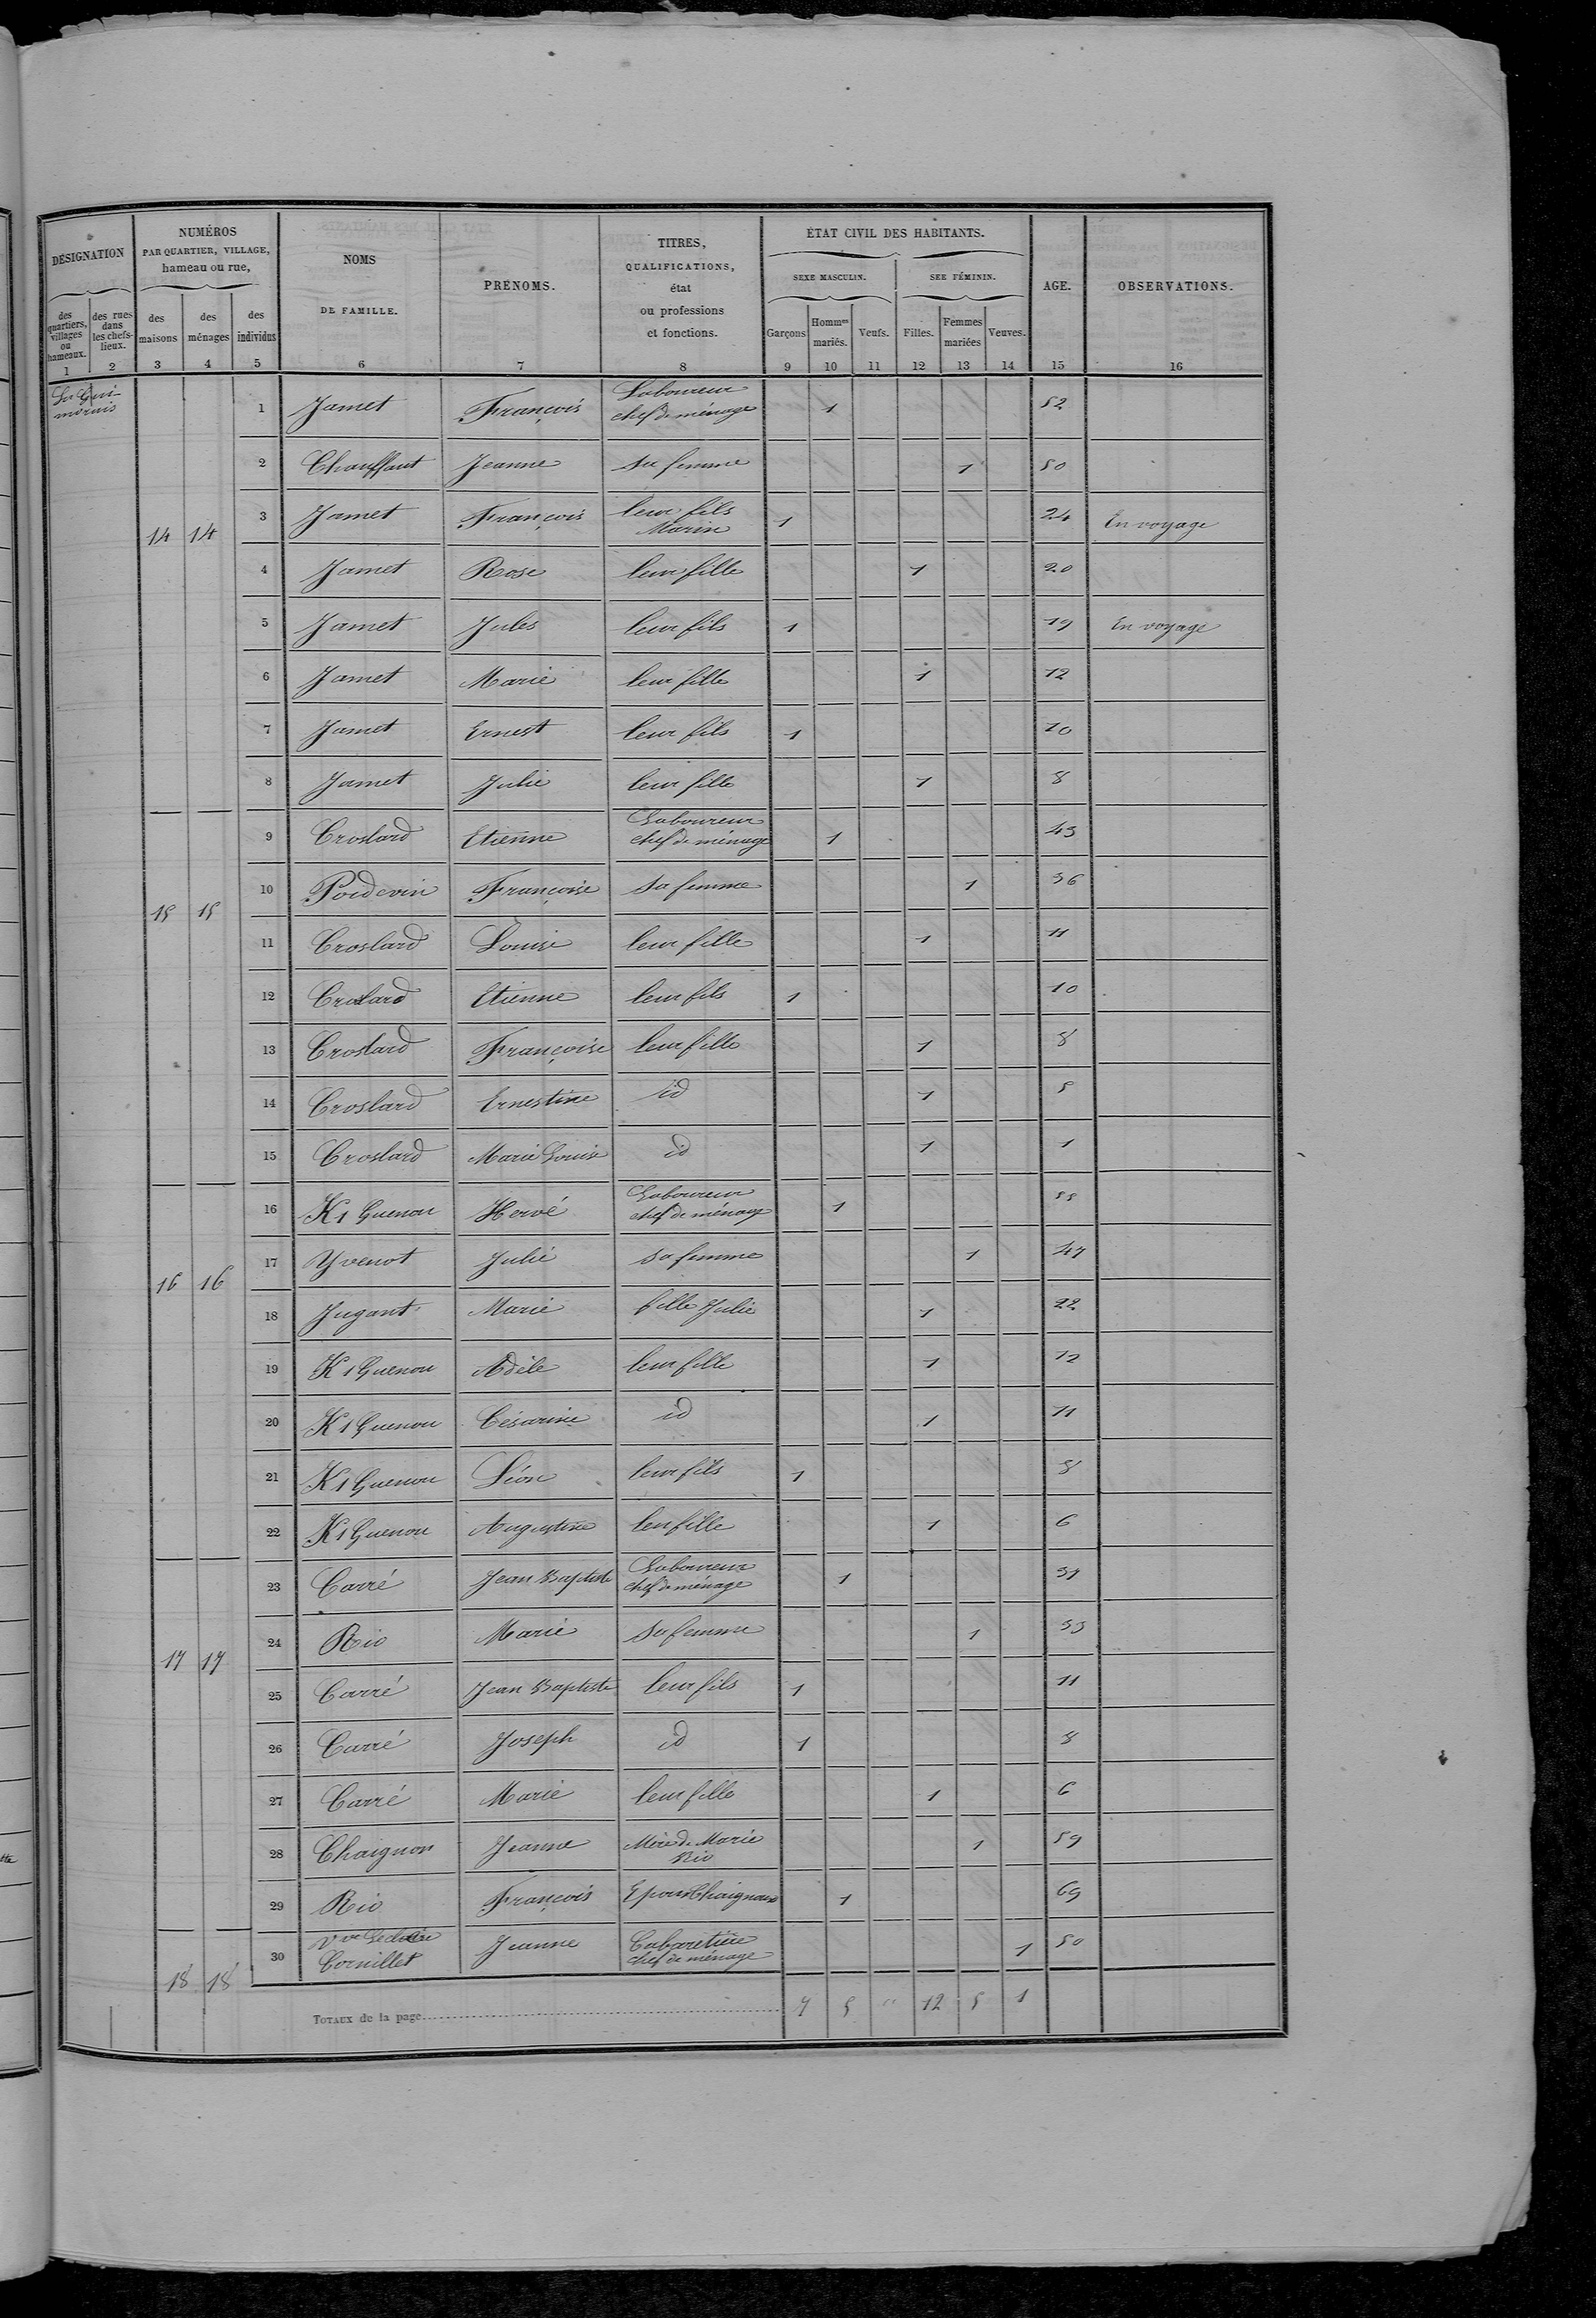 DÉSIGNATION | NUMÉROS PAR QUARTIER, VILLAGE, hameau ou rue, | NOMS DE FAMILLE. | PRÉNOMS. | TITRES, QUALIFICATIONS, état ou professions et fonctions. | ÉTAT CIVIL DES HABITANTS. | AGE. | OBSERVATIONS.
SEXE MASCULIN. | SEE FÉMININ.
des quartiers, villages ou hameaux. | des rues dans les chefs-lieux. | des maisons | des ménages | des individus | Garçons | Hommes mariés. | Veufs. | Filles. | Femmes mariées | Veuves.
1 | 2 | 3 | 4 | 5 | 6 | 7 | 8 | 9 | 10 | 11 | 12 | 13 | 14 | 15 | 16
La Gui-morais
1 | Jamet | François | Laboureur chef de ménage | 1 | 52
2 | Chauffaut | Jeanne | sa femme | 1 | 50
14 | 14 | 3 | Jamet | François | leur fils Marin | 1 | 24 | En voyage
4 | Jamet | Rose | leur fille | 1 | 20
5 | Jamet | Jules | leur fils | 1 | 19 | En voyage
6 | Jamet | Marie | leur fille | 1 | 12
7 | Jamet | Ernest | leur fils | 1 | 10
8 | Jamet | Julie | leur fille | 1 | 8
9 | Croslard | Etienne | Laboureur chef de ménage | 1 | 43
15 | 15 | 10 | Poidevin | Françoise | sa femme | 1 | 36
11 | Croslard | Louise | leur fille | 1 | 11
12 | Croslard | Etienne | leur fils | 1 | 10
13 | Croslard | Françoise | leur fille | 1 | 8
14 | Croslard | Ernestine | id | 1 | 5
15 | Croslard | Marie Louise | id | 1 | 1
16 | K1 Guenou | Hervé | Laboureur chef de ménage | 1 | 55
16 | 16 | 17 | Yvenot | Julie | sa femme | 1 | 47
18 | Jugant | Marie | fille Julie | 1 | 22
19 | K1 Guenou | Adèle | leur fille | 1 | 12
20 | K1 Guenou | Césarine | id | 1 | 11
21 | K1 Guenou | Léon | leur fils | 1 | 8
22 | K1 Guenou | Augustine | leur fille | 1 | 6
23 | Carré | Jean Baptiste | Laboureur chef de ménage | 1 | 37
17 | 17 | 24 | Rio | Marie | sa femme | 1 | 33
25 | Carré | Jean Baptiste | leur fils | 1 | 11
26 | Carré | Joseph | id | 1 | 8
27 | Carré | Marie | leur fille | 1 | 6
28 | Chaignon | Jeanne | Mère de Marie Rio | 1 | 59
29 | Rio | François | Epoux Chaignon | 1 | 69
18 | 18 | 30 | Vve Cornillet | Jeanne | Cabaretière chef de ménage | 1 | 50
TOTAUX de la page | 7 | 5 | " | 12 | 5 | 1